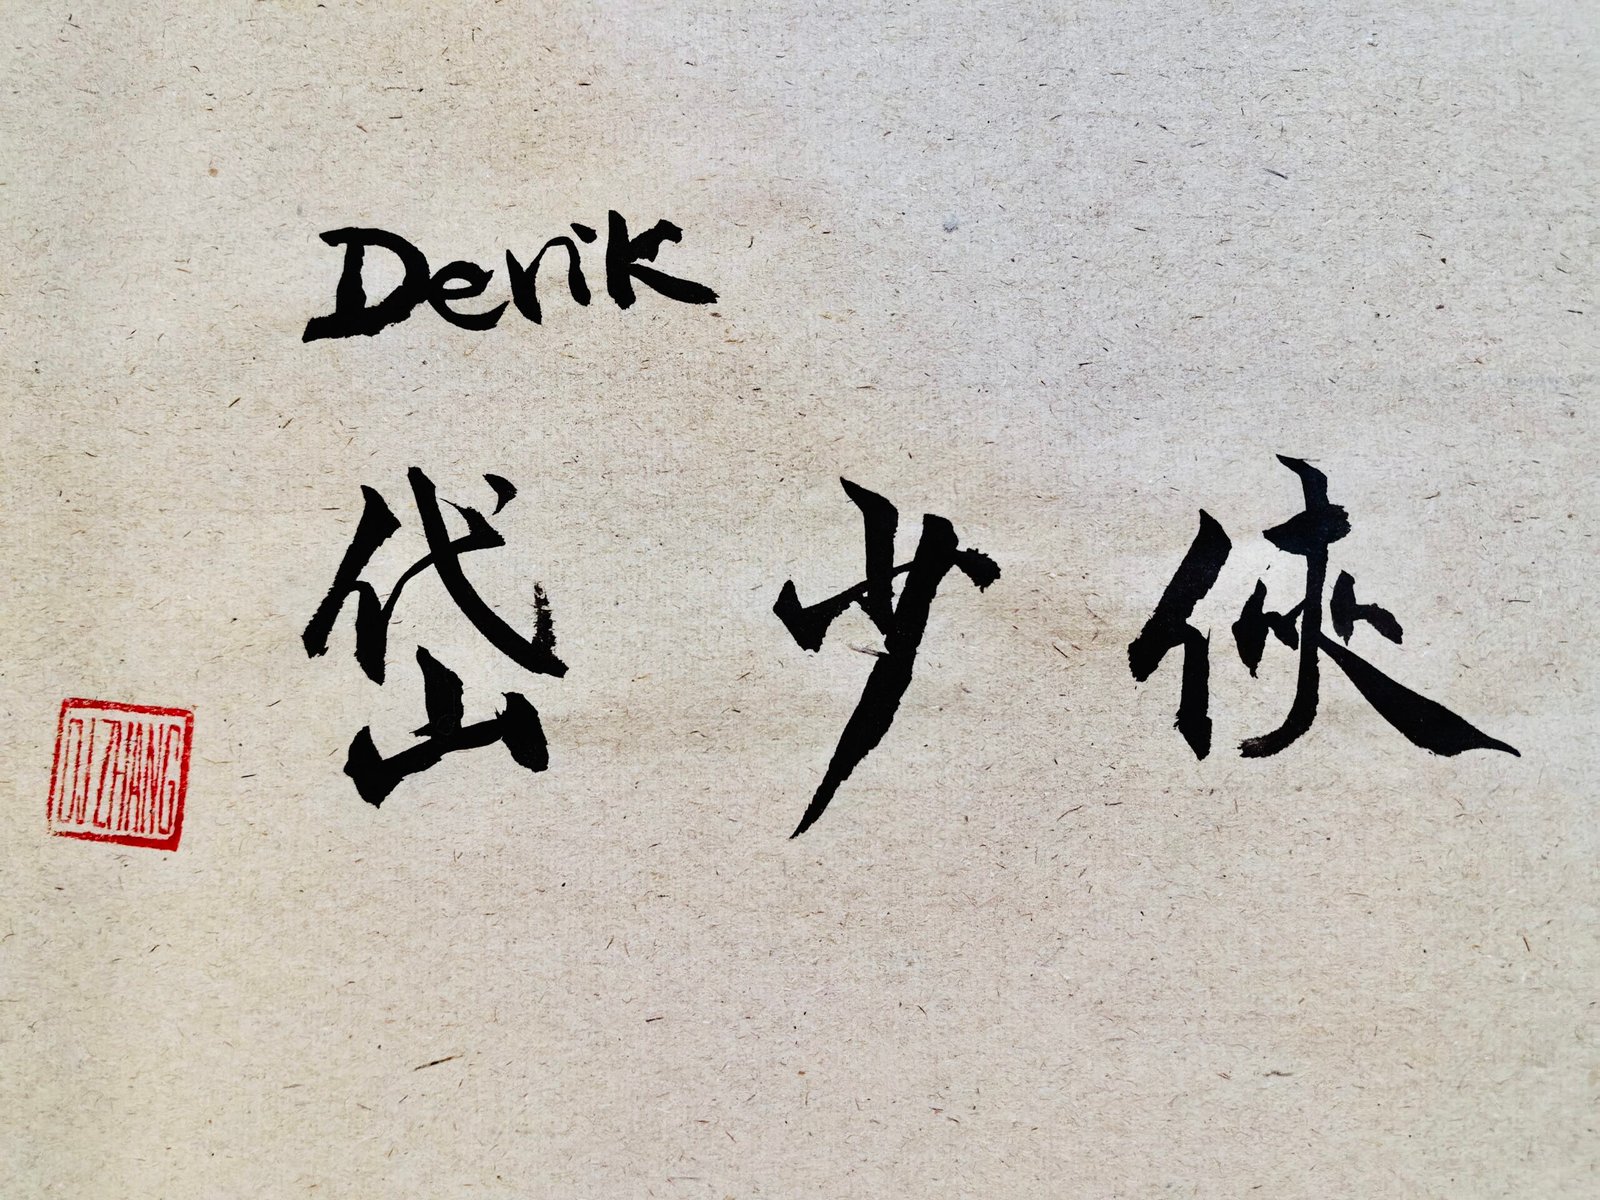 Derik
岱少俠
DJ ZHANG